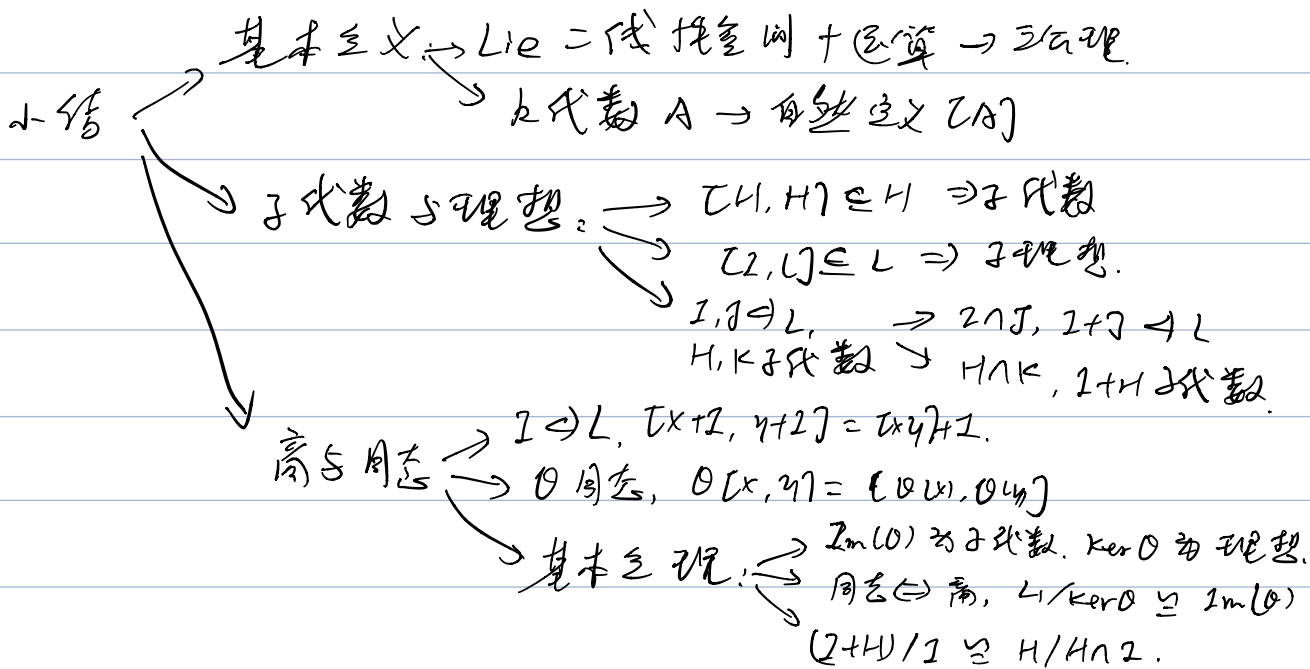 基本定义: → Lie = 线性空间 + 运算 → 三公理.
小结
k代数 A → 自然定义 [A]
子代数与理想: → [H, H] ⊆ H ⇒ 子代数
[I, L] ⊆ L ⇒ 子理想.
I, J ⊲ L, → I∩J, I+J ⊲ L
H, K子代数 ↘ H∩K, I+H 子代数.
I ⊲ L, [x+I, y+I] = [xy]+I.
商与同态 → θ同态, θ[x, y] = [θ(x), θ(y)]
基本定理: Im(θ) 为子代数. Kerθ 为理想.
同态⇔商, L1/Kerθ ≅ Im(θ)
(I+H)/I ≅ H/H∩I.